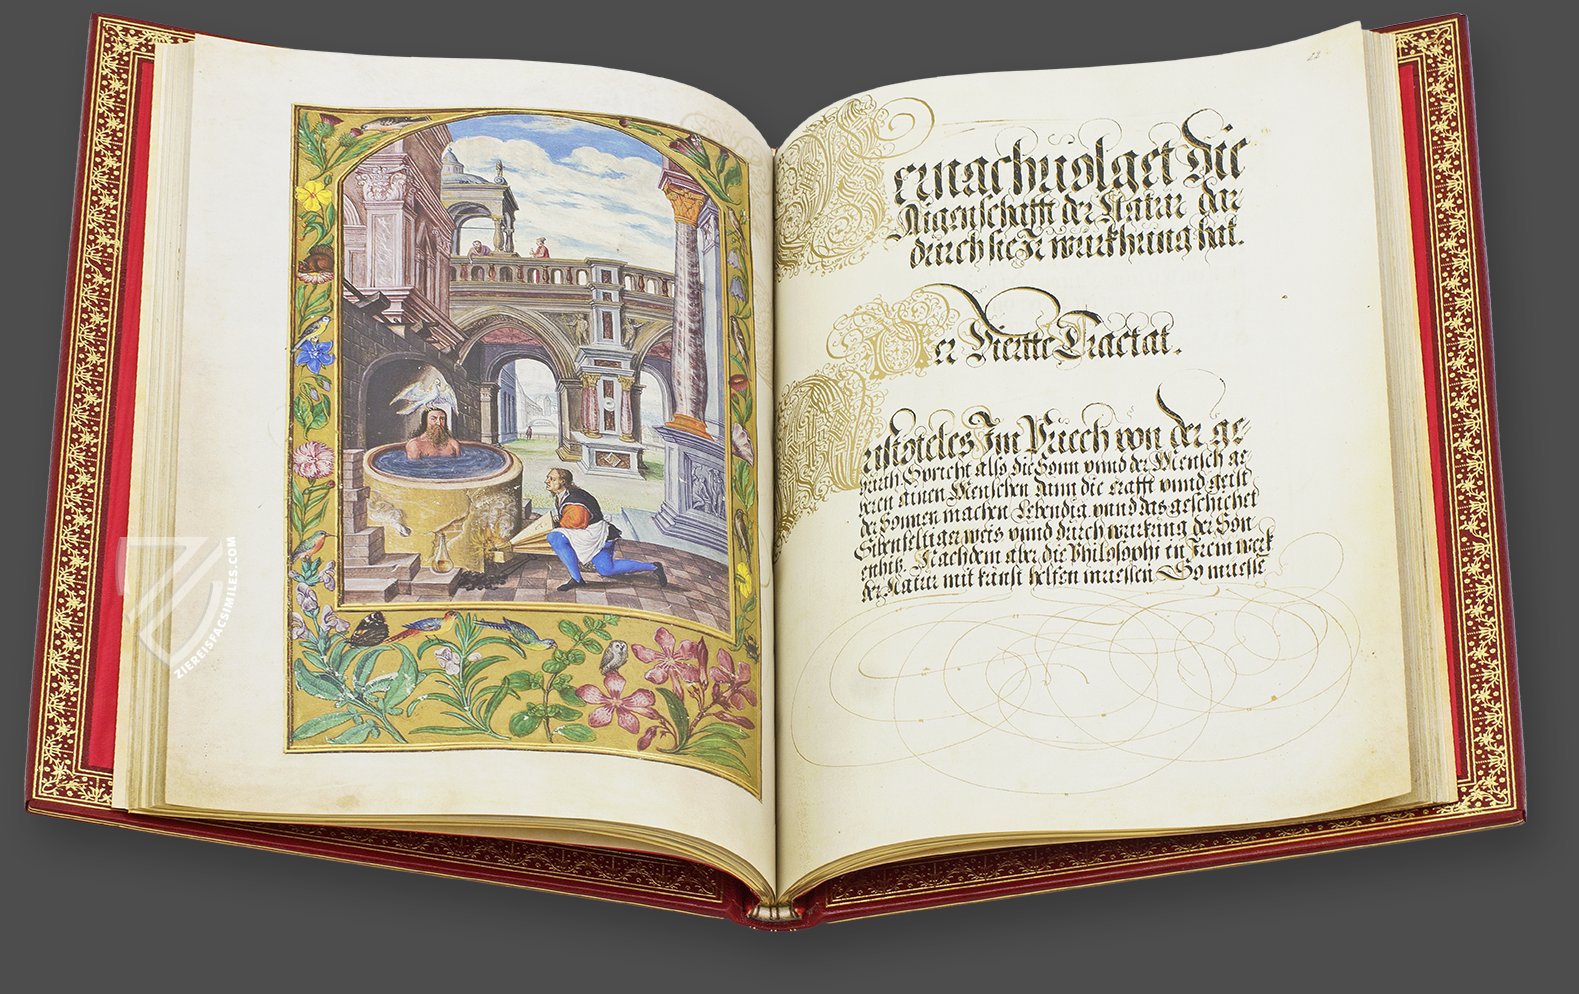 ZIEREISFACSIMILES.COM
22
Hernachuolget Die
Aigenschafft der Natur dar
durch sie Ir würkhung hat.
Der Vierte Tractat.
Aristoteles Im Buech von der ge-
burth Spricht also die Sonn vnnd der Mensch ge-
beren ainen Menschen dann die krafft vnnd geist
der Sonnen machen Lebendig vnnd das geschichet
Sibenfeltiger weis vnnd durch wurkung der Son
enhitz. Nachdem aber die Philosophi in Irem werk
der Natur mit kunst helfen muessen So muesse